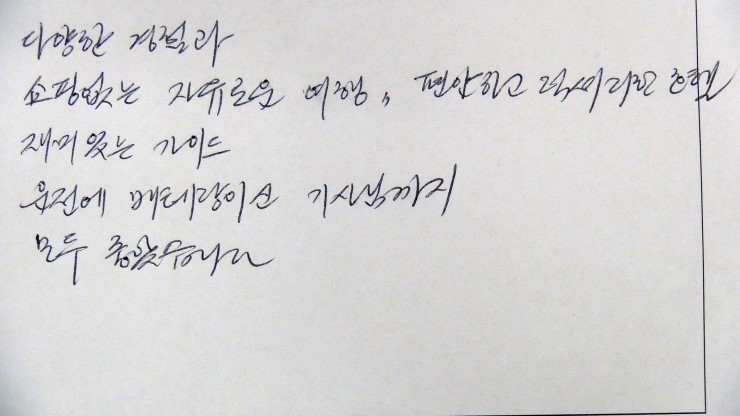 다양한 경험과
쇼핑없는 자유로운 여행, 편안하고 럭셔리한 호텔
재미있는 가이드
운전에 베테랑이신 기사님까지
모두 좋았습니다